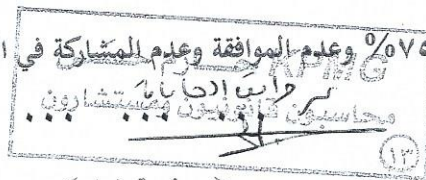 ٧٥% وعدم الموافقة وعدم المشاركة في ا
KPMG
محاسبون قانونيون ومستشارون
١٣